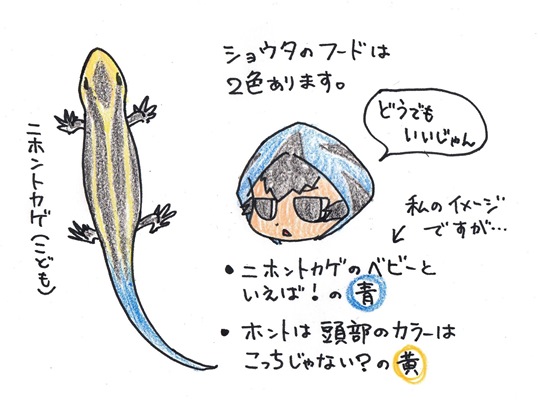 ショウタのフードは
2色あります。
どうでも
いいじゃん
私のイメージ
ですが…
ニホントカゲ(こども)
• ニホントカゲのベビーと
いえば!の青
• ホントは頭部のカラーは
こっちじゃない?の黄